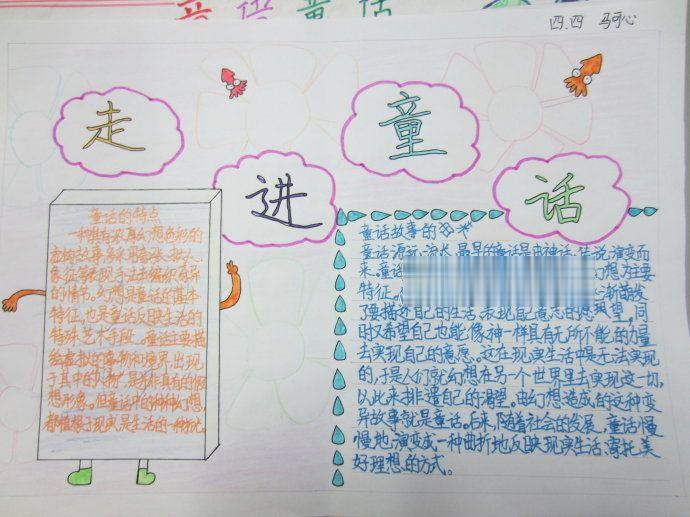 四.四 马可心
走进童话
童话的特点
一种具有浓厚幻想色彩的
虚构故事多采用夸张、拟人、
象征等表现手法去编织奇异
的情节。幻想是童话的基本
特征,也是童话反映生活的
特殊艺术手段。童话主要描
绘虚拟的事物和境界,出现
于其中的"人物",是并非真有的假
想形象。但童话中的种种幻想,
都植根于现实,是生活的一种
童话故事的
童话源远流长,最早的童话是由神话、传说演变而
来。童话
幻想为主要
特征。
渐萌发
了要描述自己的生活、表现自己意志的愿望。同
时又希望自己也能像神一样具有无所不能的力量
去实现自己的意愿。这在现实生活中是无法实现
的,于是人们就幻想在另一个世界里去实现这一切,
以此来排遣自己的渴望。由幻想造成的这种变
异故事就是童话。后来,随着社会的发展,童话慢
慢地演变成一种曲折地反映现实生活、寄托美
好理想的方式。